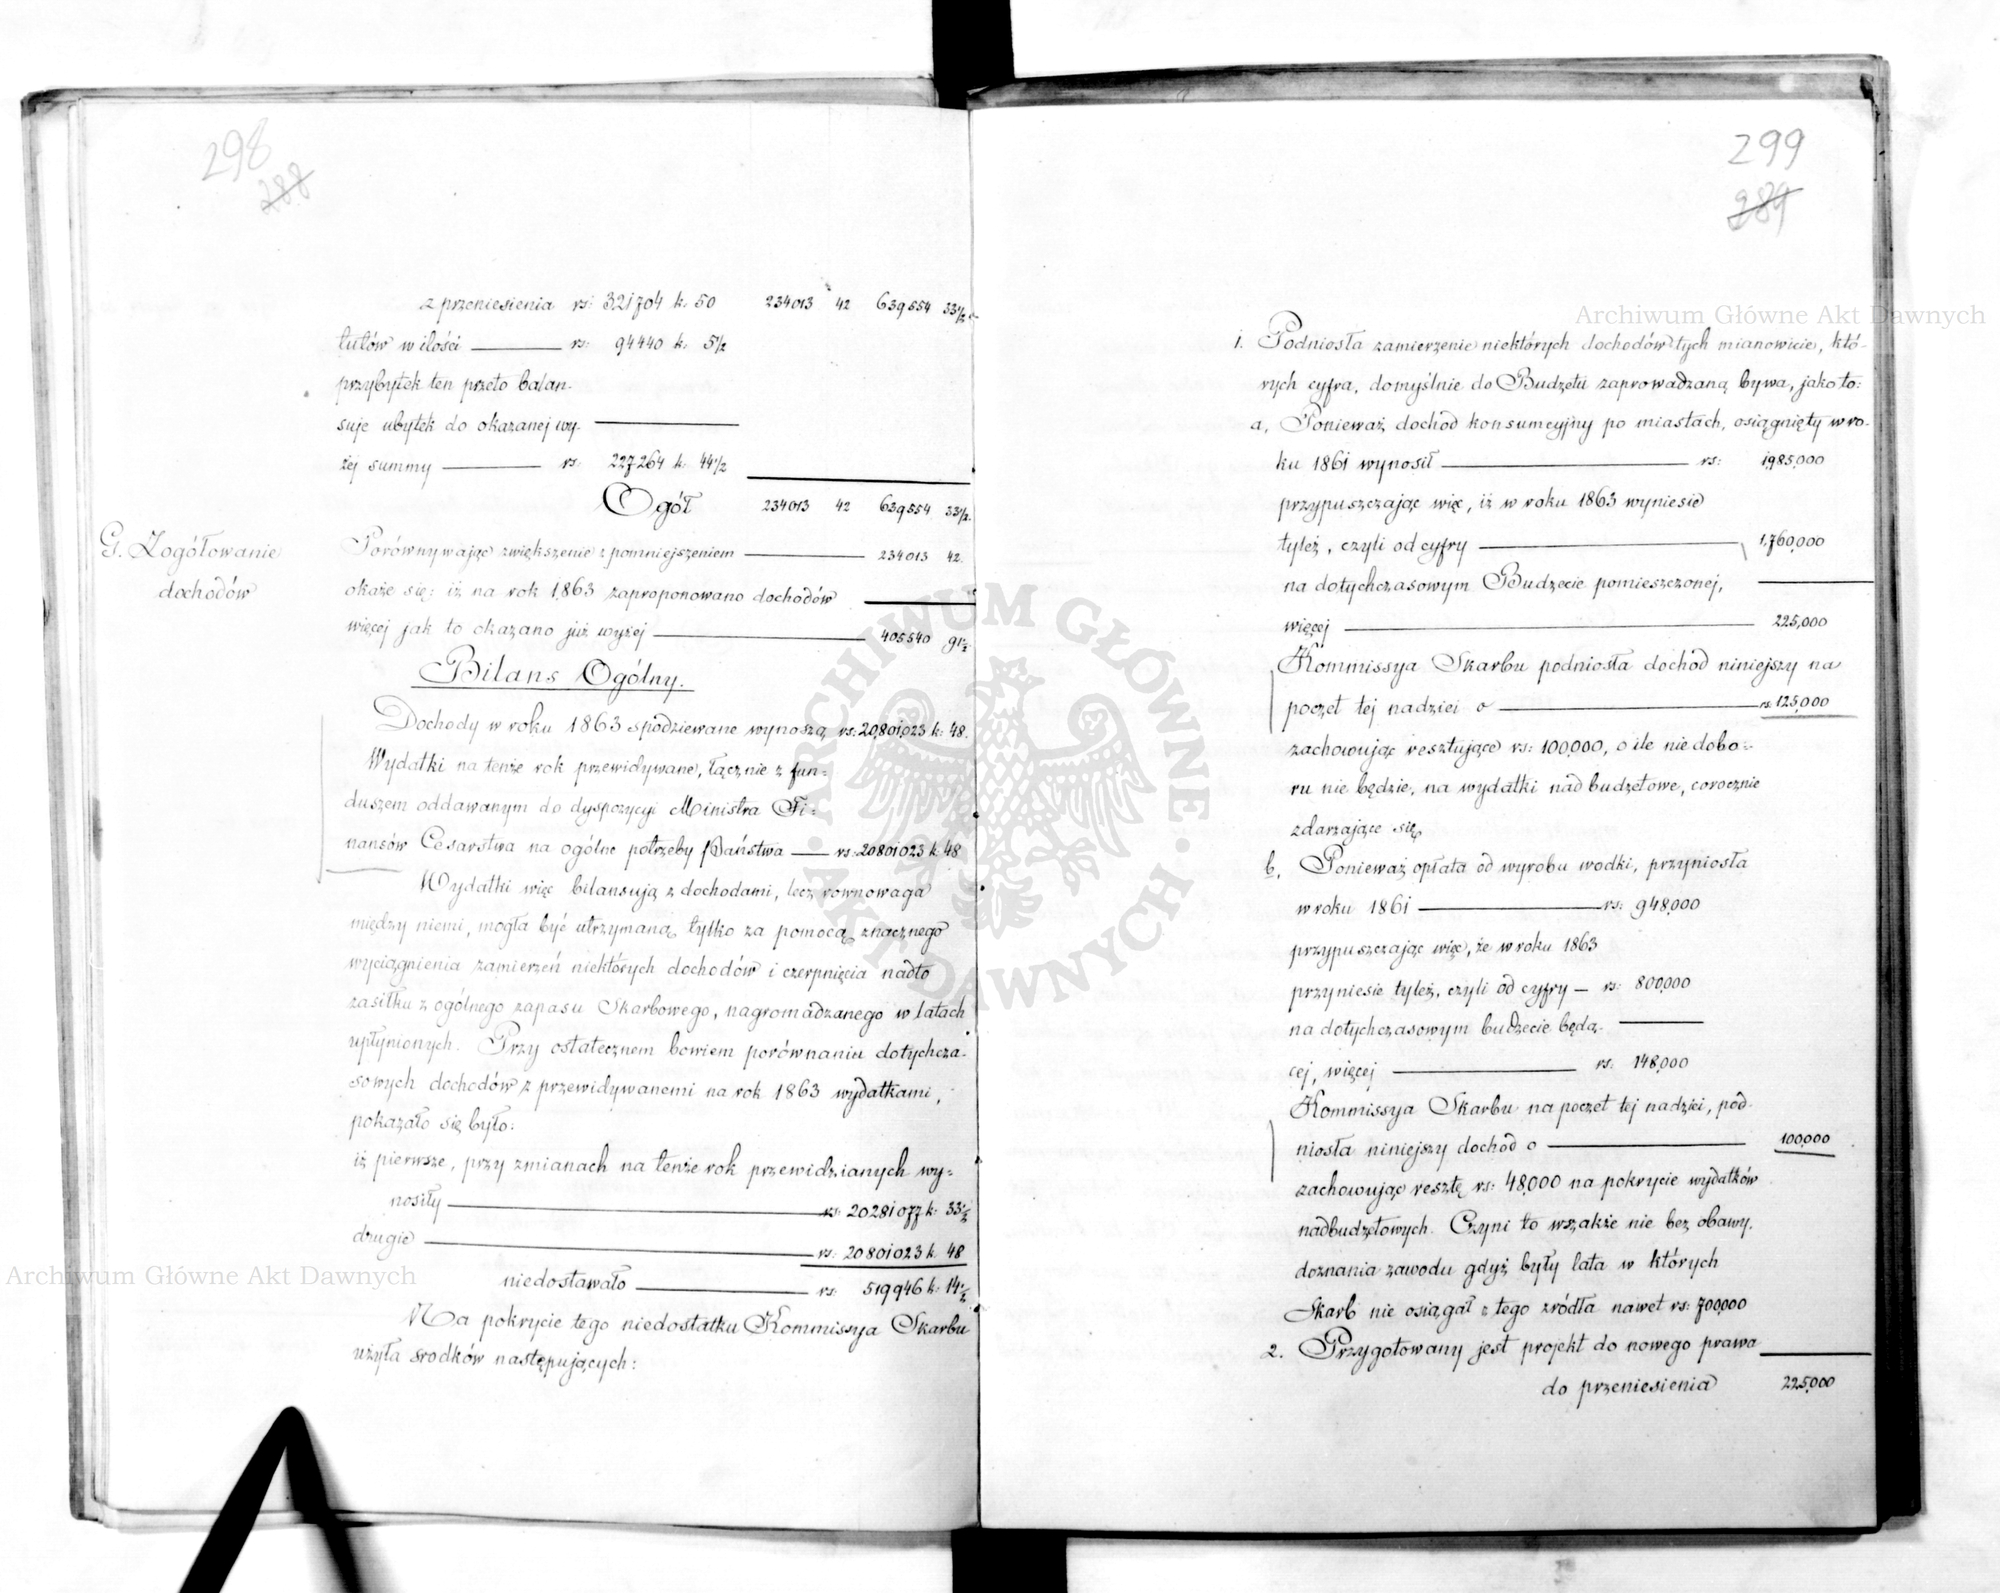 298
288
z przeniesienia rs: 321704 k. 50 234013 42 639554 33 1/2
tułów w ilości rs: 94440 k. 5 1/2
przybytek ten przeto balan-
suje ubytek do okazanej wy-
żej summy rs: 227264 k. 44 1/2
Ogół 234013 42 639554 33 1/2
G. Zogółowanie
dochodów
Porównywając zwiększenie z pomniejszeniem 234013 42
okaże się: iż na rok 1863 zaproponowano dochodów
więcej jak to okazano już wyżej 405540 91 1/2
Bilans Ogólny.
Dochody w roku 1863 spodziewane wynoszą rs: 20,801,023 k: 48.
Wydatki na tenże rok przewidywane, łącznie z fun-
duszem oddawanym do dyspozycyi Ministra Fi-
nansów Cesarstwa na ogólne potrzeby Państwa rs: 20801023 k. 48
Wydatki więc bilansują z dochodami, lecz rownowaga
między niemi, mogła być utrzymaną tylko za pomocą znacznego
wyciągnienia zamierzeń niektórych dochodów i czerpnięcia nadto
zasiłku z ogólnego zapasu Skarbowego, nagromadzanego w latach
upłynionych. Przy ostatecznem bowiem porównaniu dotychcza-
sowych dochodów z przewidywanemi na rok 1863 wydatkami,
pokazało się było:
iż pierwsze, przy zmianach na tenże rok przewidzianych wy-
nosiły rs: 20281077 k: 33 1/2
drugie rs: 20801023 k. 48
niedostawało rs: 519946 k. 14 1/2
Na pokrycie tego niedostatku Kommissya Skarbu
użyła srodków następujących:
299
289
1. Podniosła zamierzenie niektórych dochodów tych mianowicie, któ-
rych cyfra, domyślnie do Budżetu zaprowadzaną bywa, jako to:
a, Ponieważ dochod konsumcyjny po miastach, osiągnięty w ro-
ku 1861 wynosił rs: 1,985,000
przypuszczając więc, iż w roku 1863 wyniesie
tyleż, czyli od cyfry 1,760,000
na dotychczasowym Budżecie pomieszczonej,
więcej 225,000
Kommissya Skarbu podniosła dochod niniejszy na
poczet tej nadziei o rs: 125,000
zachowując resztujące rs: 100,000, o ile niedobo-
ru nie będzie, na wydatki nadbudżetowe, corocznie
zdarzające się,
b, Ponieważ opłata od wyrobu wodki, przyniosła
w roku 1861 rs: 948,000
przypuszczając więc, że w roku 1863
przyniesie tyleż, czyli od cyfry rs: 800,000
na dotychczasowym budżecie będą-
cej, więcej rs: 148,000
Kommissya Skarbu na poczet tej nadziei, pod-
niosła niniejszy dochod o 100,000
zachowując resztę rs: 48,000 na pokrycie wydatków
nadbudżetowych. Czyni to wszakże nie bez obawy,
doznania zawodu gdyż były lata w których
Skarb nie osiągał z tego zródła nawet rs: 700,000
2. Przygotowany jest projekt do nowego prawa
do przeniesienia 225,000
Archiwum Główne Akt Dawnych
Archiwum Główne Akt Dawnych
ARCHIWUM GŁÓWNE · AKT DAWNYCH ·